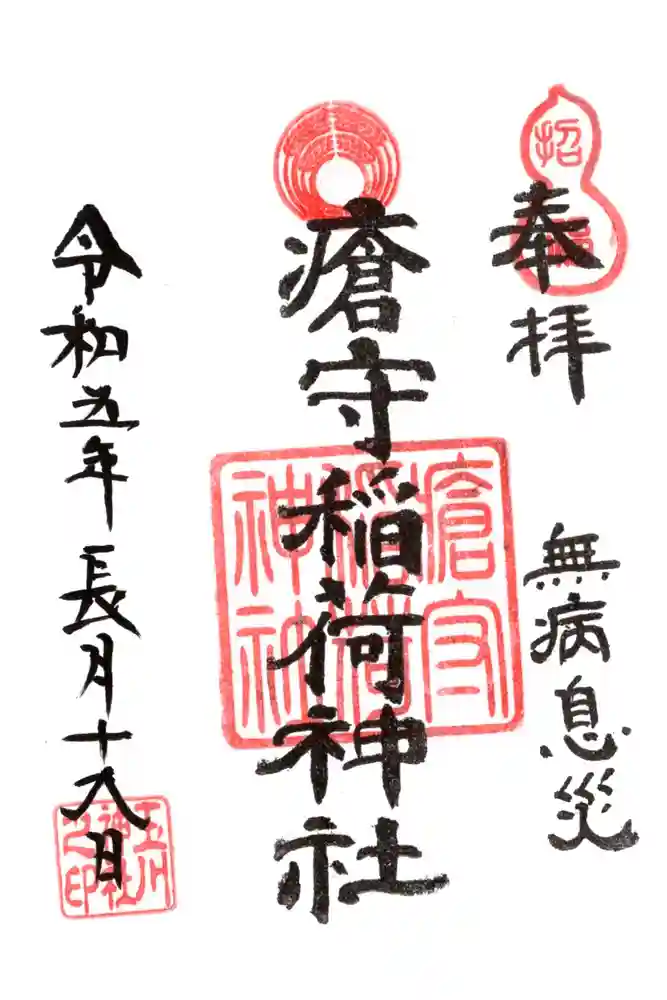 奉拝
無病息災
瘡守稲荷神社
令和五年長月十八日
招福
瘡守
稲荷
神社
玉川
神社
之印